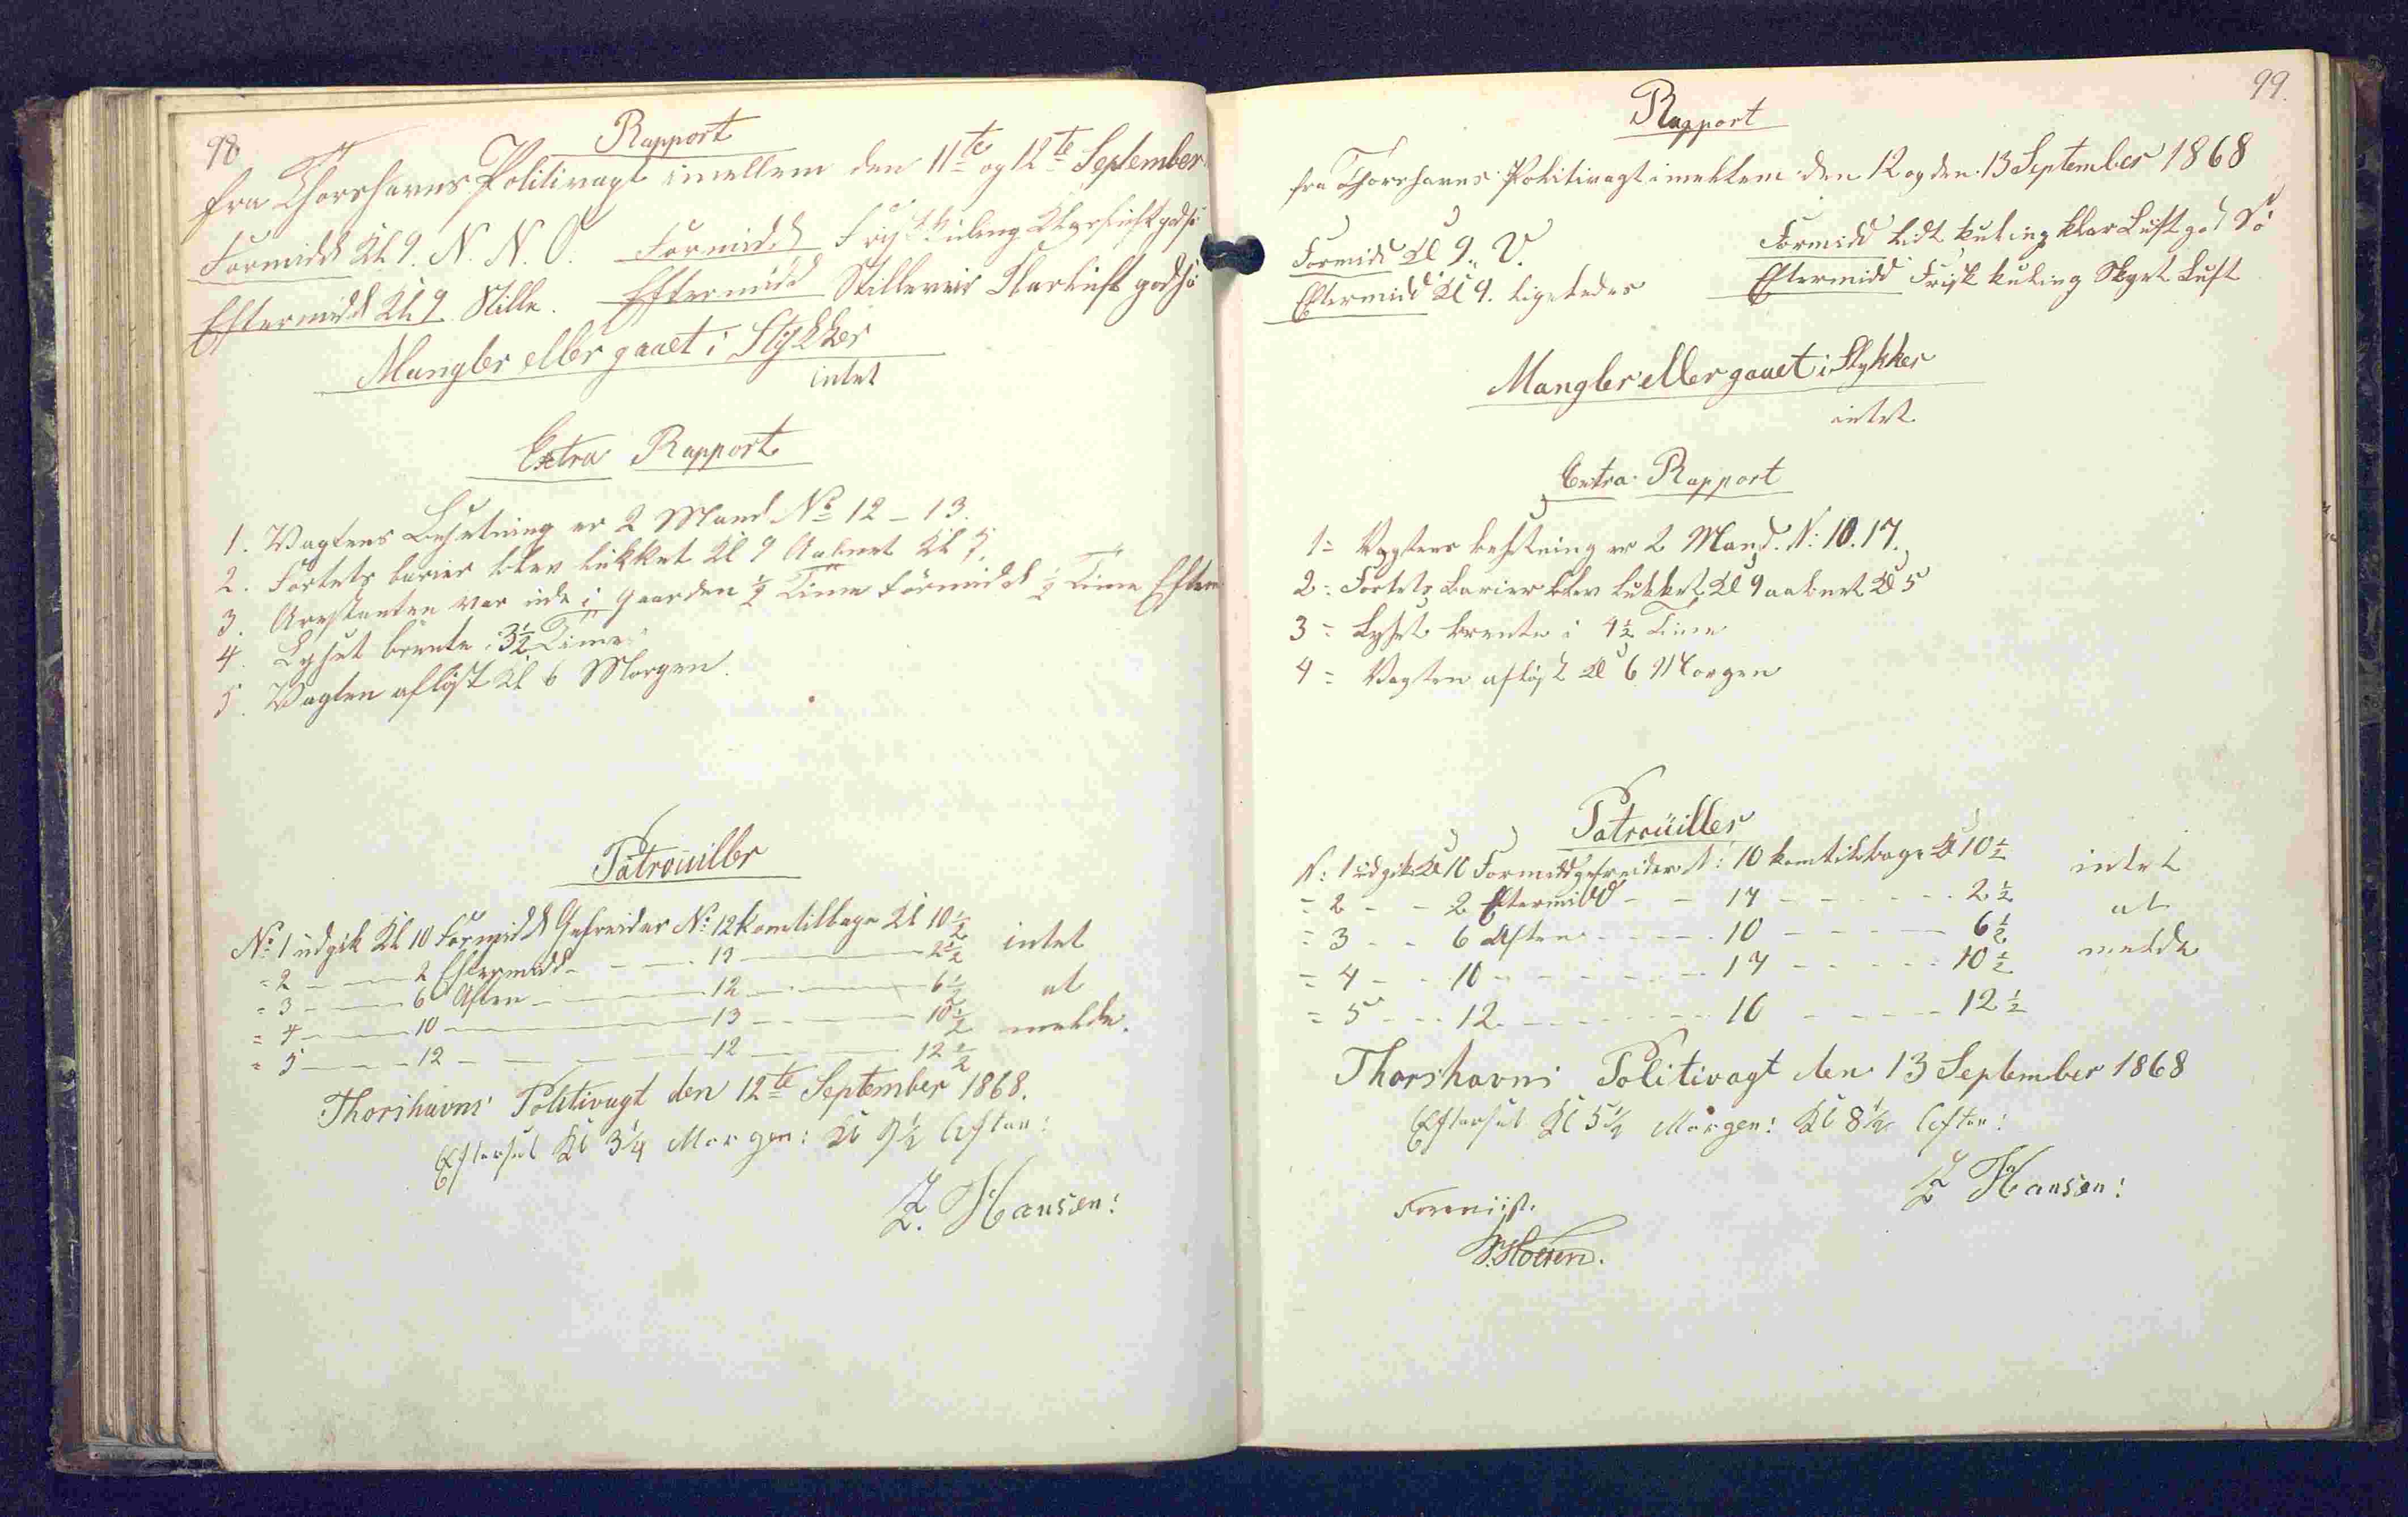 98
Rapport
fra Thorshavns Politivagt imellem den 11te og 12te September
Formidd Kl 9. N. N. O. Formidd Frisk Kuling Klar Luft god Sö
Eftermidd Kl 9 Stille. Eftermidd Stilleveir Klar Luft god Sö
Mangler eller gaaet i Stykker
intet
Extra Rapport
1. Vagtens Besetning er 2 Mand No 12 - 13.
2. Fortets barier blev lukket Kl 9 Aabnet Kl 5.
3. Arestanten var ude i Gaarden ½ Time Formidd ½ Time Efterm
4. Lyset brente i 3½ Time
5. Vagten aflöst Kl 6 Morgen.
Patrouiller
No 1 udgik Kl 10 Formidd Gefreider No 12 kom tilbage Kl 10½ intet
= 2 - - 2 Eftermidd - - 13 - - 2½
= 3 - - 6 Aften - - 12 - - 6½ at
= 4 - - 10 - - 13 - - 10½ melde.
= 5 - - 12 - - 12 - - 12½
Thorshavns Politivagt den 12te September 1868.
Efterset Kl 3¼ Morgen: Kl 9½ Aften:
Z. Hansen:
99.
Rapport
fra Thorshavns Politivagt imellem den 12 og den 13 September 1868
Formidd Kl 9. V. Formidd lidt kuling klar Luft god Sö
Eftermidd Kl 9. ligeledes Eftermidd Frisk kuling Skyet Luft
Mangler eller gaaet i Stykker
intet
Extra Rapport
1= Vagtens besetning er 2 Mand. N: 10. 17.
2= Fortets Barier blev lukket Kl 9 aabnet Kl 5
3= Lyset brente i 4½ Time
4= Vagten aflöst Kl 6 Morgen
Patrouiller
N: 1 udgik Kl 10 Formidd gefreider N: 10 kom tilbage Kl 10½ intet
= 2 - - 2 Eftermidd - - 17 - - 2½ at
= 3 - - 6 Aften - - 10 - - 6½
= 4 - - 10 - - 17 - - 10½ melde
= 5 - - 12 - - 10 - - 12½
Thorshavns Politivagt den 13 September 1868
Efterset Kl 5½ Morgen: Kl 8½ Aften:
Z Hansen:
Foreviist.